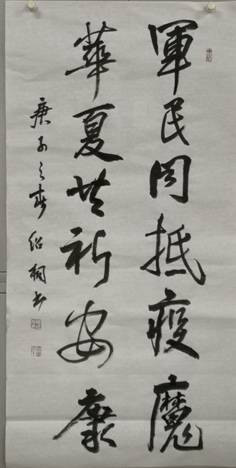 軍民同抵疫魔
華夏共祈安康
庚子之春 绍桐书